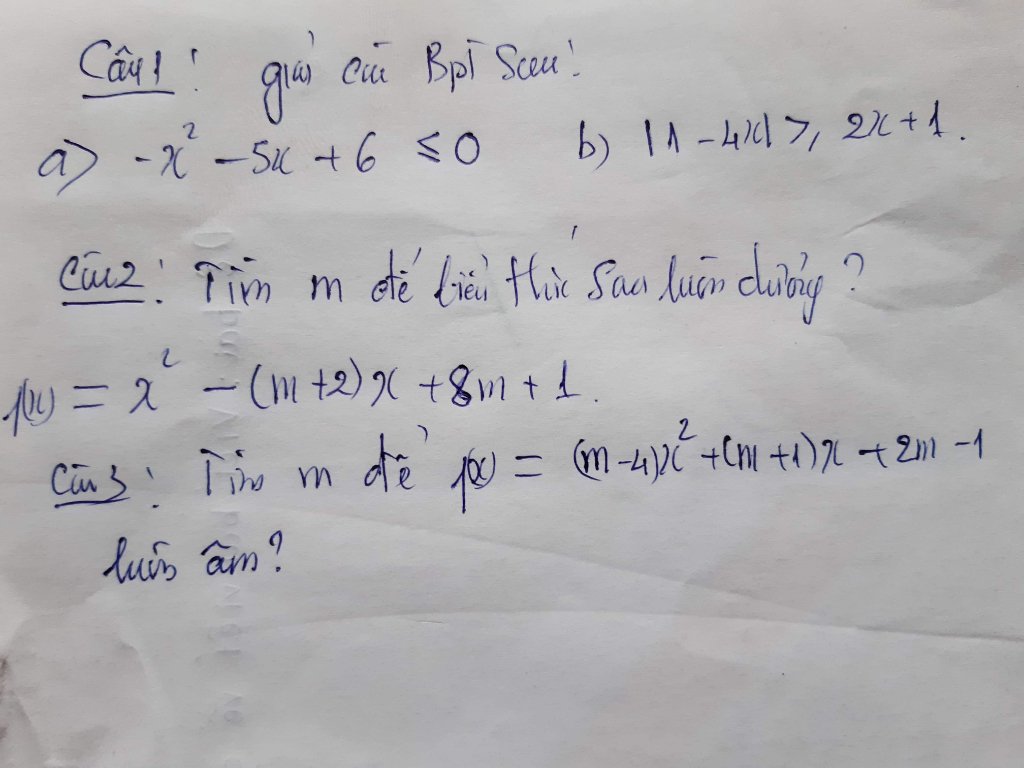 Câu1: giải các Bpt Sau:
a) -x² - 5x + 6 ≤ 0 b) |1 - 4x| ≥ 2x + 1.
Câu2: Tìm m để biểu thức sau luôn dương?
f(x) = x² - (m+2)x + 8m + 1.
Câu3: Tìm m để f(x) = (m-4)x² + (m+1)x + 2m - 1
luôn âm?